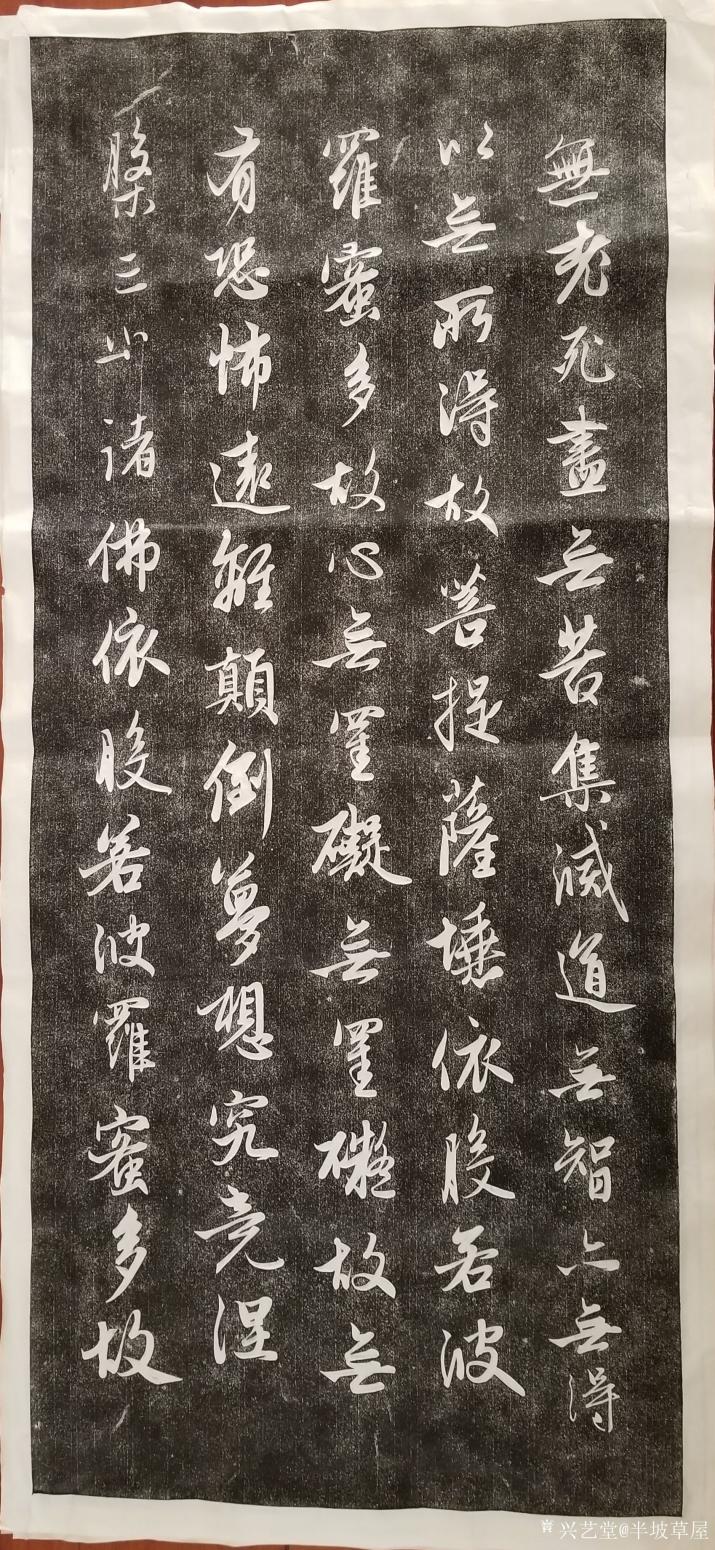 無老死盡无苦集滅道无智亦無得
以无所得故菩提薩埵依般若波
羅蜜多故心无罣礙无罣礙故无
有恐怖遠離顛倒夢想究竟涅
槃三世諸佛依般若波羅蜜多故
兴艺堂@半坡草屋